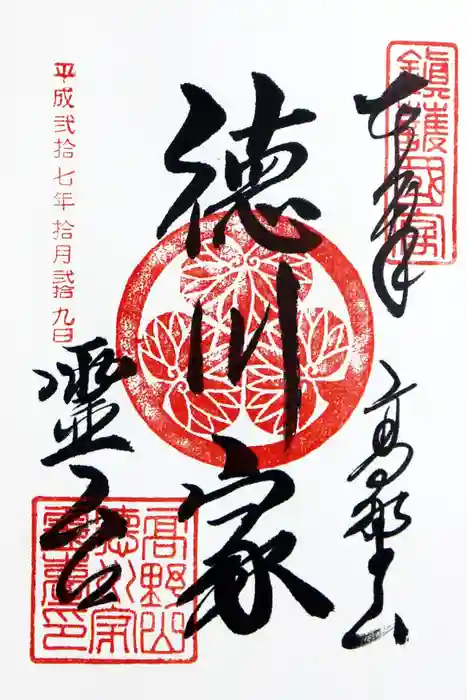 奉拝
高野山
鎮護国家
徳川家
霊台
高野山徳川家霊臺印
平成弐拾七年拾月弐拾九日